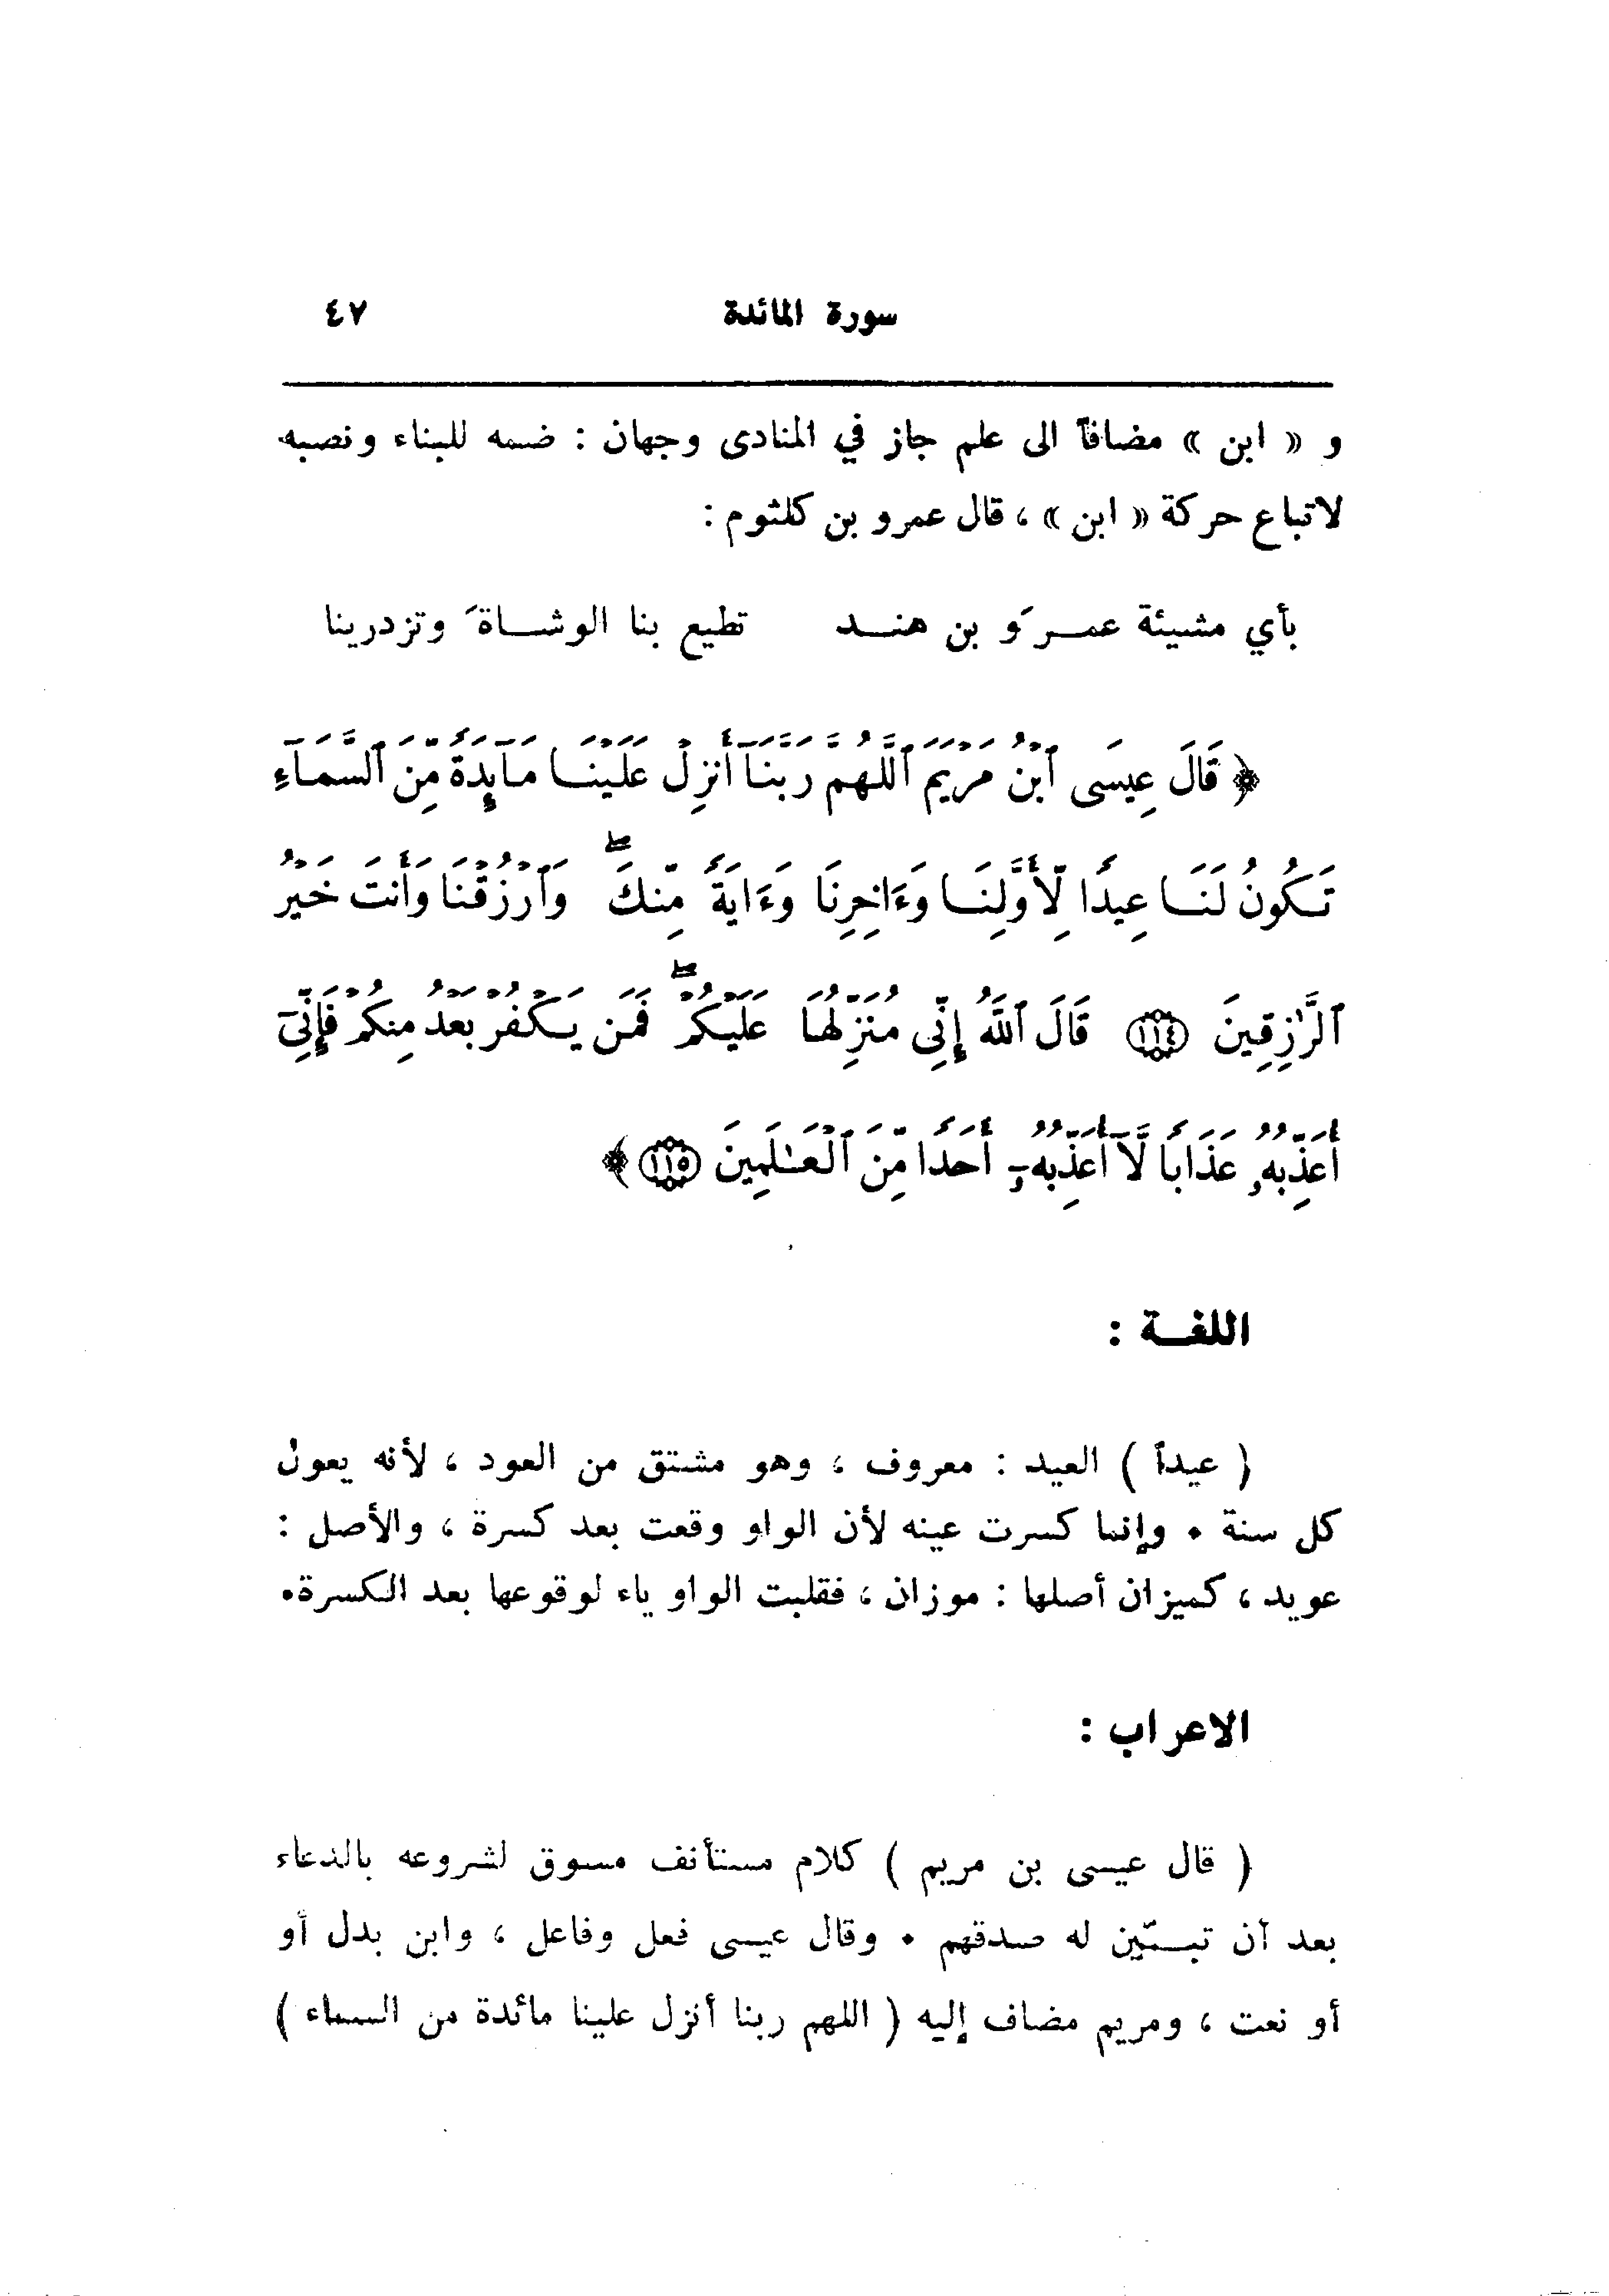 سورة المائدة ٤٧
و « ابن » مضافاً الى علم جاز في المنادى وجهان : ضمه للبناء ونصبه
لاتباع حركة « ابن » ، قال عمرو بن كلثوم :
بأي مشيئة عمـرَو بن هنـد تطيع بنا الوشـاةَ وتزدرينا
﴿ قَالَ عِيسَى ٱبْنُ مَرْيَمَ ٱللَّهُمَّ رَبَّنَآ أَنزِلْ عَلَيْنَا مَآئِدَةً مِّنَ ٱلسَّمَآءِ
تَكُونُ لَنَا عِيدًا لِّأَوَّلِنَا وَءَاخِرِنَا وَءَايَةً مِّنكَ ۖ وَٱرْزُقْنَا وَأَنتَ خَيْرُ
ٱلرَّٰزِقِينَ ١١٤ قَالَ ٱللَّهُ إِنِّى مُنَزِّلُهَا عَلَيْكُمْ ۖ فَمَن يَكْفُرْ بَعْدُ مِنكُمْ فَإِنِّىٓ
أُعَذِّبُهُۥ عَذَابًا لَّآ أُعَذِّبُهُۥٓ أَحَدًا مِّنَ ٱلْعَـٰلَمِينَ ١١٥ ﴾
اللغـة :
( عيداً ) العيد : معروف ، وهو مشتق من العود ، لأنه يعود
كل سنة • وإنما كسرت عينه لأن الواو وقعت بعد كسرة ، والأصل :
عويد ، كميزان أصلها : موزان ، فقلبت الواو ياء لوقوعها بعد الكسرة•
الاعراب :
( قال عيسى بن مريم ) كلام مستأنف مسوق لشروعه بالدعاء
بعد أن تبـيّن له صدقهم • وقال عيسى فعل وفاعل ، وابن بدل أو
أو نعت ، ومريم مضاف إليه ( اللهم ربنا أنزل علينا مائدة من السماء )